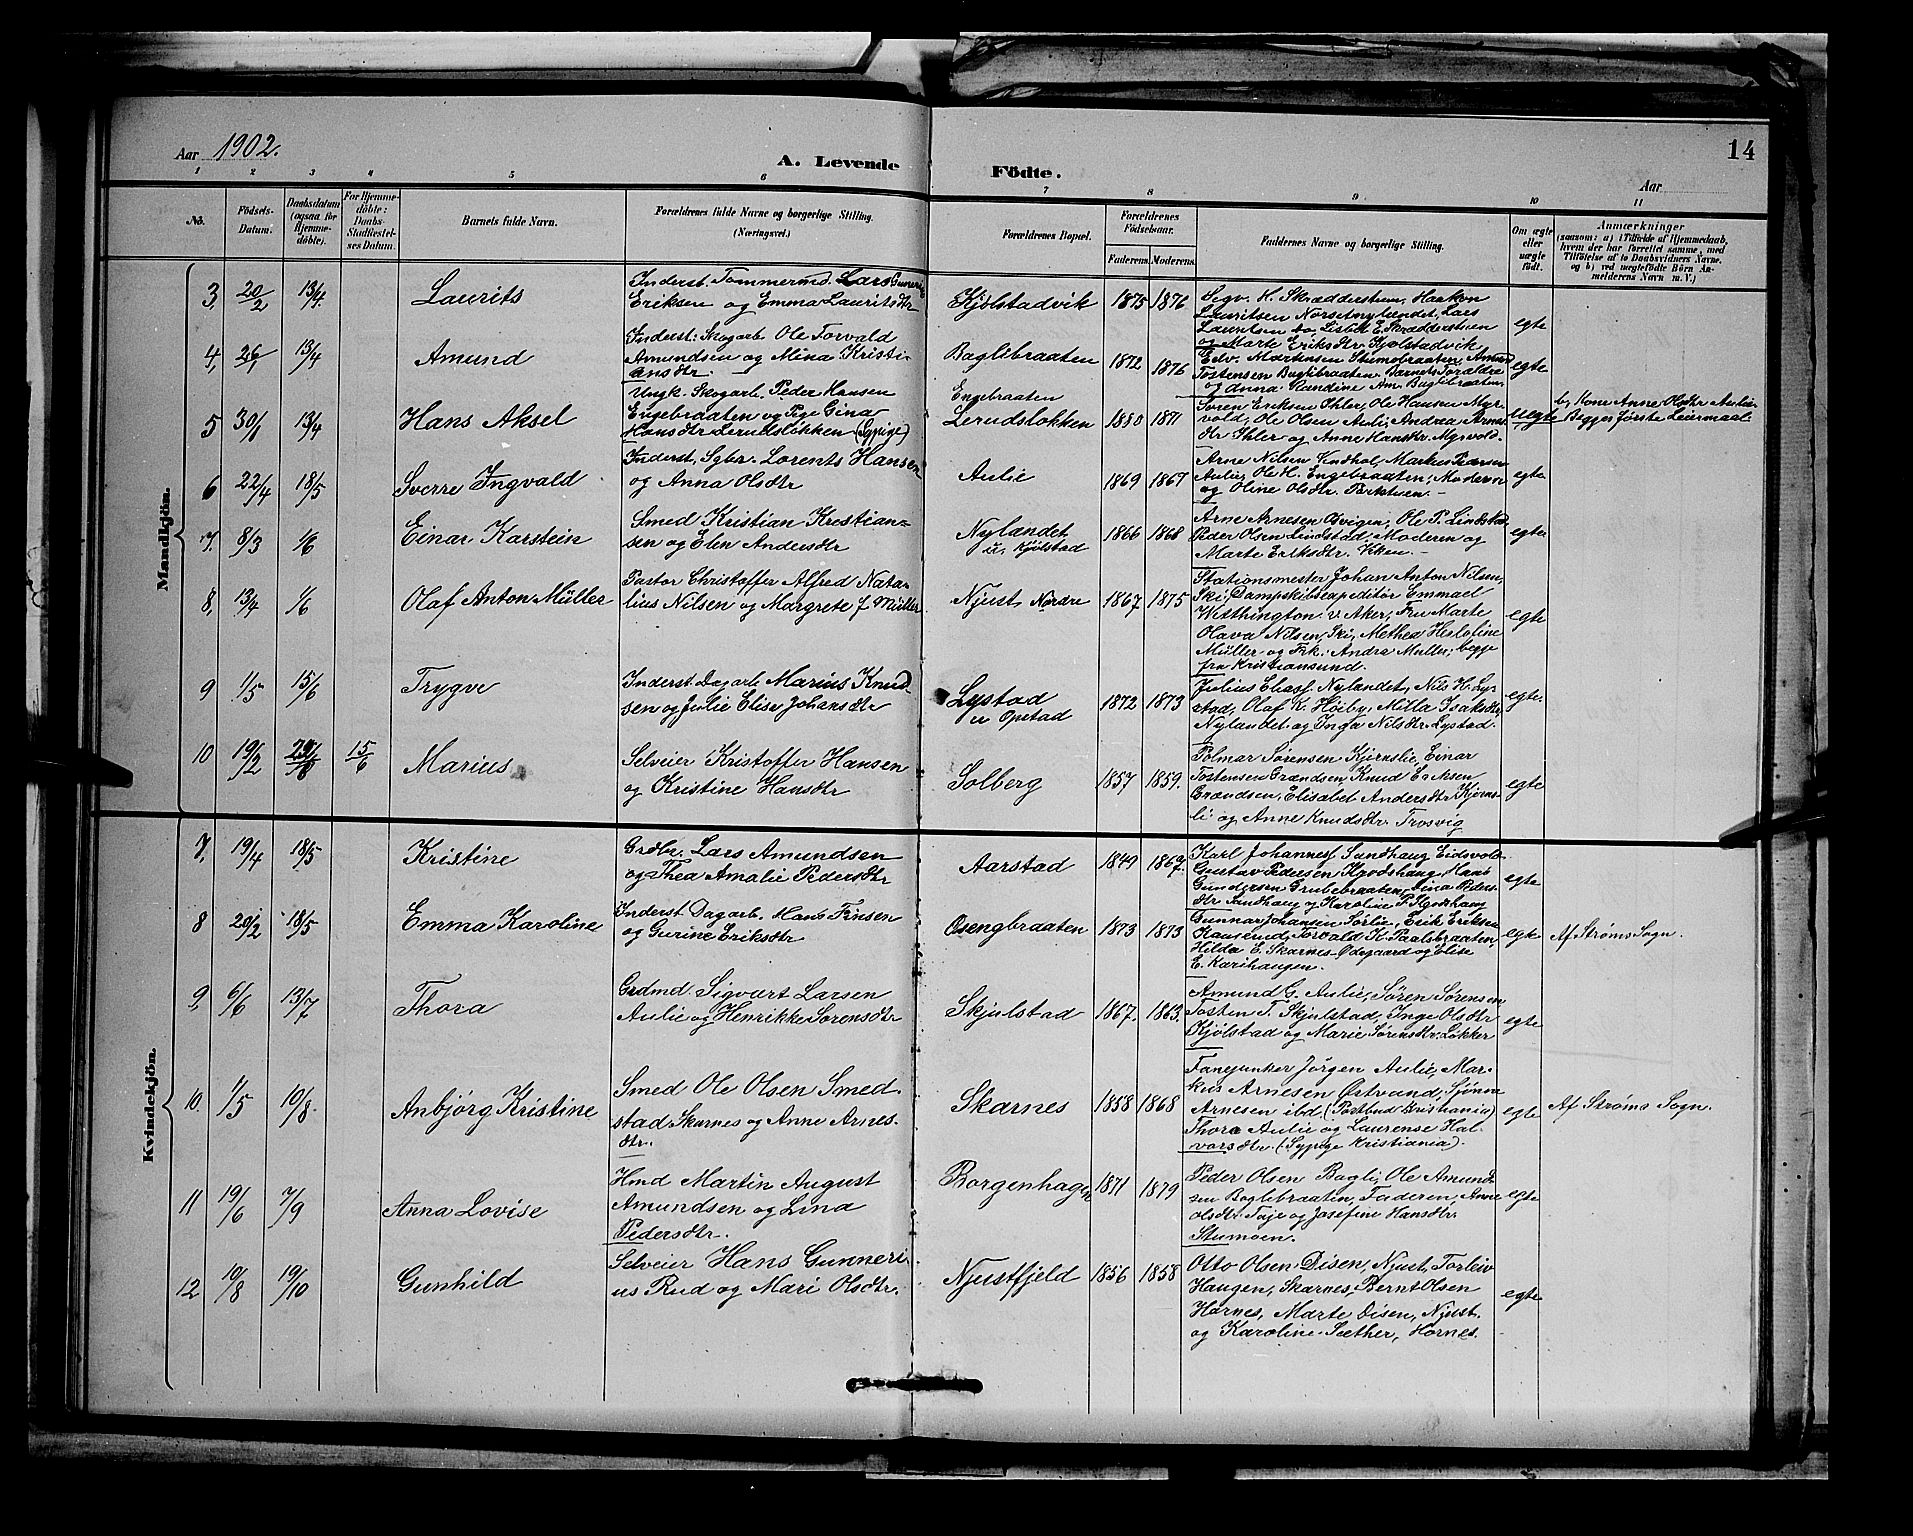 Aar 1902.
A. Levende
Födte.
Aar
14
1 2 3 4 5 6 7 8 9 10 11
No.
Födsels-Datum.
Daabsdatum (ogsaa for Hjemmedöbte).
For Hjemmedöbte: Daabs-Stadfæstelses Datum.
Barnets fulde Navn.
Forældrenes fulde Navne og borgerlige Stilling.
(Næringsvei.)
Forældrenes Bopæl.
Forældrenes Födselsaar.
Faderens. Moderens.
Faddernes Navne og borgerlige Stilling.
Om ægte eller uægte födt.
Anmærkninger
(saasom: a) i Tilfælde af Hjemmedaab,
hvem der har forrettet samme, med
Tilföielse af to Daabsvidners Navne,
og b) ved uægtefödte Börn Anmelderens Navn m. V.)
Mandkjön.
3, 20/2 13/4 Laurits
Inderst. Tømmermd. Lars Gunnerius
Eriksen og Emma Lauritsdtr
Kjölstadvik 1875 1876
Segv. H. Skrædderstuen, Haakon
Lauritsen Norsetnylændet, Lars
Lauritsen do, Lisbet E. Skrædderstuen
og Marte Eriksdtr. Kjolstadvik
egte
4, 26/1 13/4 Amund
Inderst: Skogarb Ole Torvald
Amundsen og Mina Kristi-
ansdtr.
Baglibraaten 1872 1876
Edv. Martinsen Stumobraaten, Amund
Tostensen Baglibraaten, Barnets Forældre
og Anna Randine Am. Baglibraaten
egte
5 30/1 13/4 Hans Aksel
Ungk. Skogarb. Peder Hansen
Engebraaten og Pige Gina
Hansdtr Lerudslökken (Sypige)
Engebraaten
Lerudslokken 1880 1871
Soren Eriksen Ihler, Ole Hansen Myr-
vold, Ole Olsen Auli, Andrea Arnes-
dtr Ihler og Anne Hansdtr. Myrvold.
Uegte
b, Kone Anne Olsdtr Aulie
Begges første Leiermaal.
6 22/4 18/5 Sverre Ingvald
Inderst, Sgbr. Lorents Hansen
og Anna Olsdtr
Aulie 1869 1867
Arne Nilsen Vindhol, Markus Pedersen
Aulie, Ole H. Engebraaten, Moderen
og Oline Olsdtr.
egte
7. 8/3 1/6 Einar Karstein
Smed Kristian Kristian-
sen og Elen Andersdtr
Nylændet
u. Kjölstad 1866 1868
Arne Arnesen Osvigen, Ole P. Lindstad
Peder Olsen Lindstad, Moderen og
Marte Eriksdtr. Viken.-
egte
8, 13/4 1/6 Olaf Anton Müller
Pastor Christoffer Alfred Nata-
lius Nilsen og Margrete f. Müller
Njust, Nordre 1867 1875
Stationsmester Johan Anton Nilsen,
Ski, Dampskibsexpeditör Emmael
Witthington v. Aker, Fru Marte
Olava Nilsen, Ski, Methea
Müller og Frk. Andra Muller, begge
fra Kristiansund.
egte
9 1/5 15/6 Trygve
Inderst. Dagarb. Marius Knud-
sen og Julie Elise Johansdtr
Lystad
u Opstad 1872 1873
Julius Eliasf. Nylandet, Nils H. Ly-
stad, Olaf K. Höiby, Milla Isaksdtr
Nylandet og Inga Nilsdtr. Lystad.
egte.
10 19/2 15/6 Marius
Selveier Kristoffer Hansen
og Kristine Hansdtr
Solberg 1857 1859.
Polmar Sørensen Kjernslie, Einar
Tostensen Grændsen, Knud Eriksen
Grændsen, Elisabet Andersdtr Kjerns-
li og Anne Knudsdtr. Trosvig
egte
Kvindekjön.
7, 19/4 18/5 Kristine
Grdbr. Lars Amundsen
og Thea Amalie Pedersdtr
Aarstad 1849 1867.
Karl Johannesf. Sundhaug Eidsvold.
Gustav Pedersen Hordshaug, Hans
Gundersen Grubebraaten, Lina Peders-
dtr Sundhaug og Karoline P. Hordshaug
egte
8 20/2 18/5 Emma Karoline
Inderst Dagarb. Hans Finsen
og Gurine Eriksdtr
Osengbraaten 1873 1873
Gunnar Johansen Sørlie, Erik Eriksen
Kauserud, Torvald K. Paalsbraaten,
Hilda E. Skarnes-Ødegaard og Elise
E. Karihaugen.
egte
Af Strøms Sogn.
9, 6/6 13/7 Thora
Grdmd. Sigvart Larsen
Aulie og Henrikke Sørensdtr
Skjulstad 1867. 1863.
Amund G. Aulie, Søren Sørensen
Tosten T. Skjulstad, Inge Olsdtr
Kjölstad og Marie Sørensdtr. Løkker
egte
10. 1/5 10/8. Anbjörg Kristine
Smed Ole Olsen Smed-
stad Skarnes og Anne Arnes-
dtr.
Skarnes 1858 1868
Fanejunker Jörgen Aulie, Mar-
kus Arnesen Østvand, Sjönne
Arnesen ibd. (Postbud Kristiania)
Thora Aulie og Laurense Hal-
vorsdtr. (Sypige Kristiania).
egte
Af Strøms Sogn.
11 19/6 7/9 Anna Lovise
Hmd Martin August
Amundsen og Lina
Pedersdtr.
Borgenhagen 1871 1879
Peder Olsen Bagli, Ole Amund-
sen Baglibraaten, Faderen, Anne
Olsdtr. Taje og Josefine Hansdtr.
Stumoen.
egte
12 10/8 19/10 Gunhild
Selveier Hans Gunneri-
us Rud og Mari Olsdtr.
Njustfjeld 1856 1858
Otto Olsen Disen, Njust, Torleiv
Haugen, Skarnes, Bernt Olsen
Hornes, Marte Disen, Njust
og Karoline Sæther, Hornes.
egte